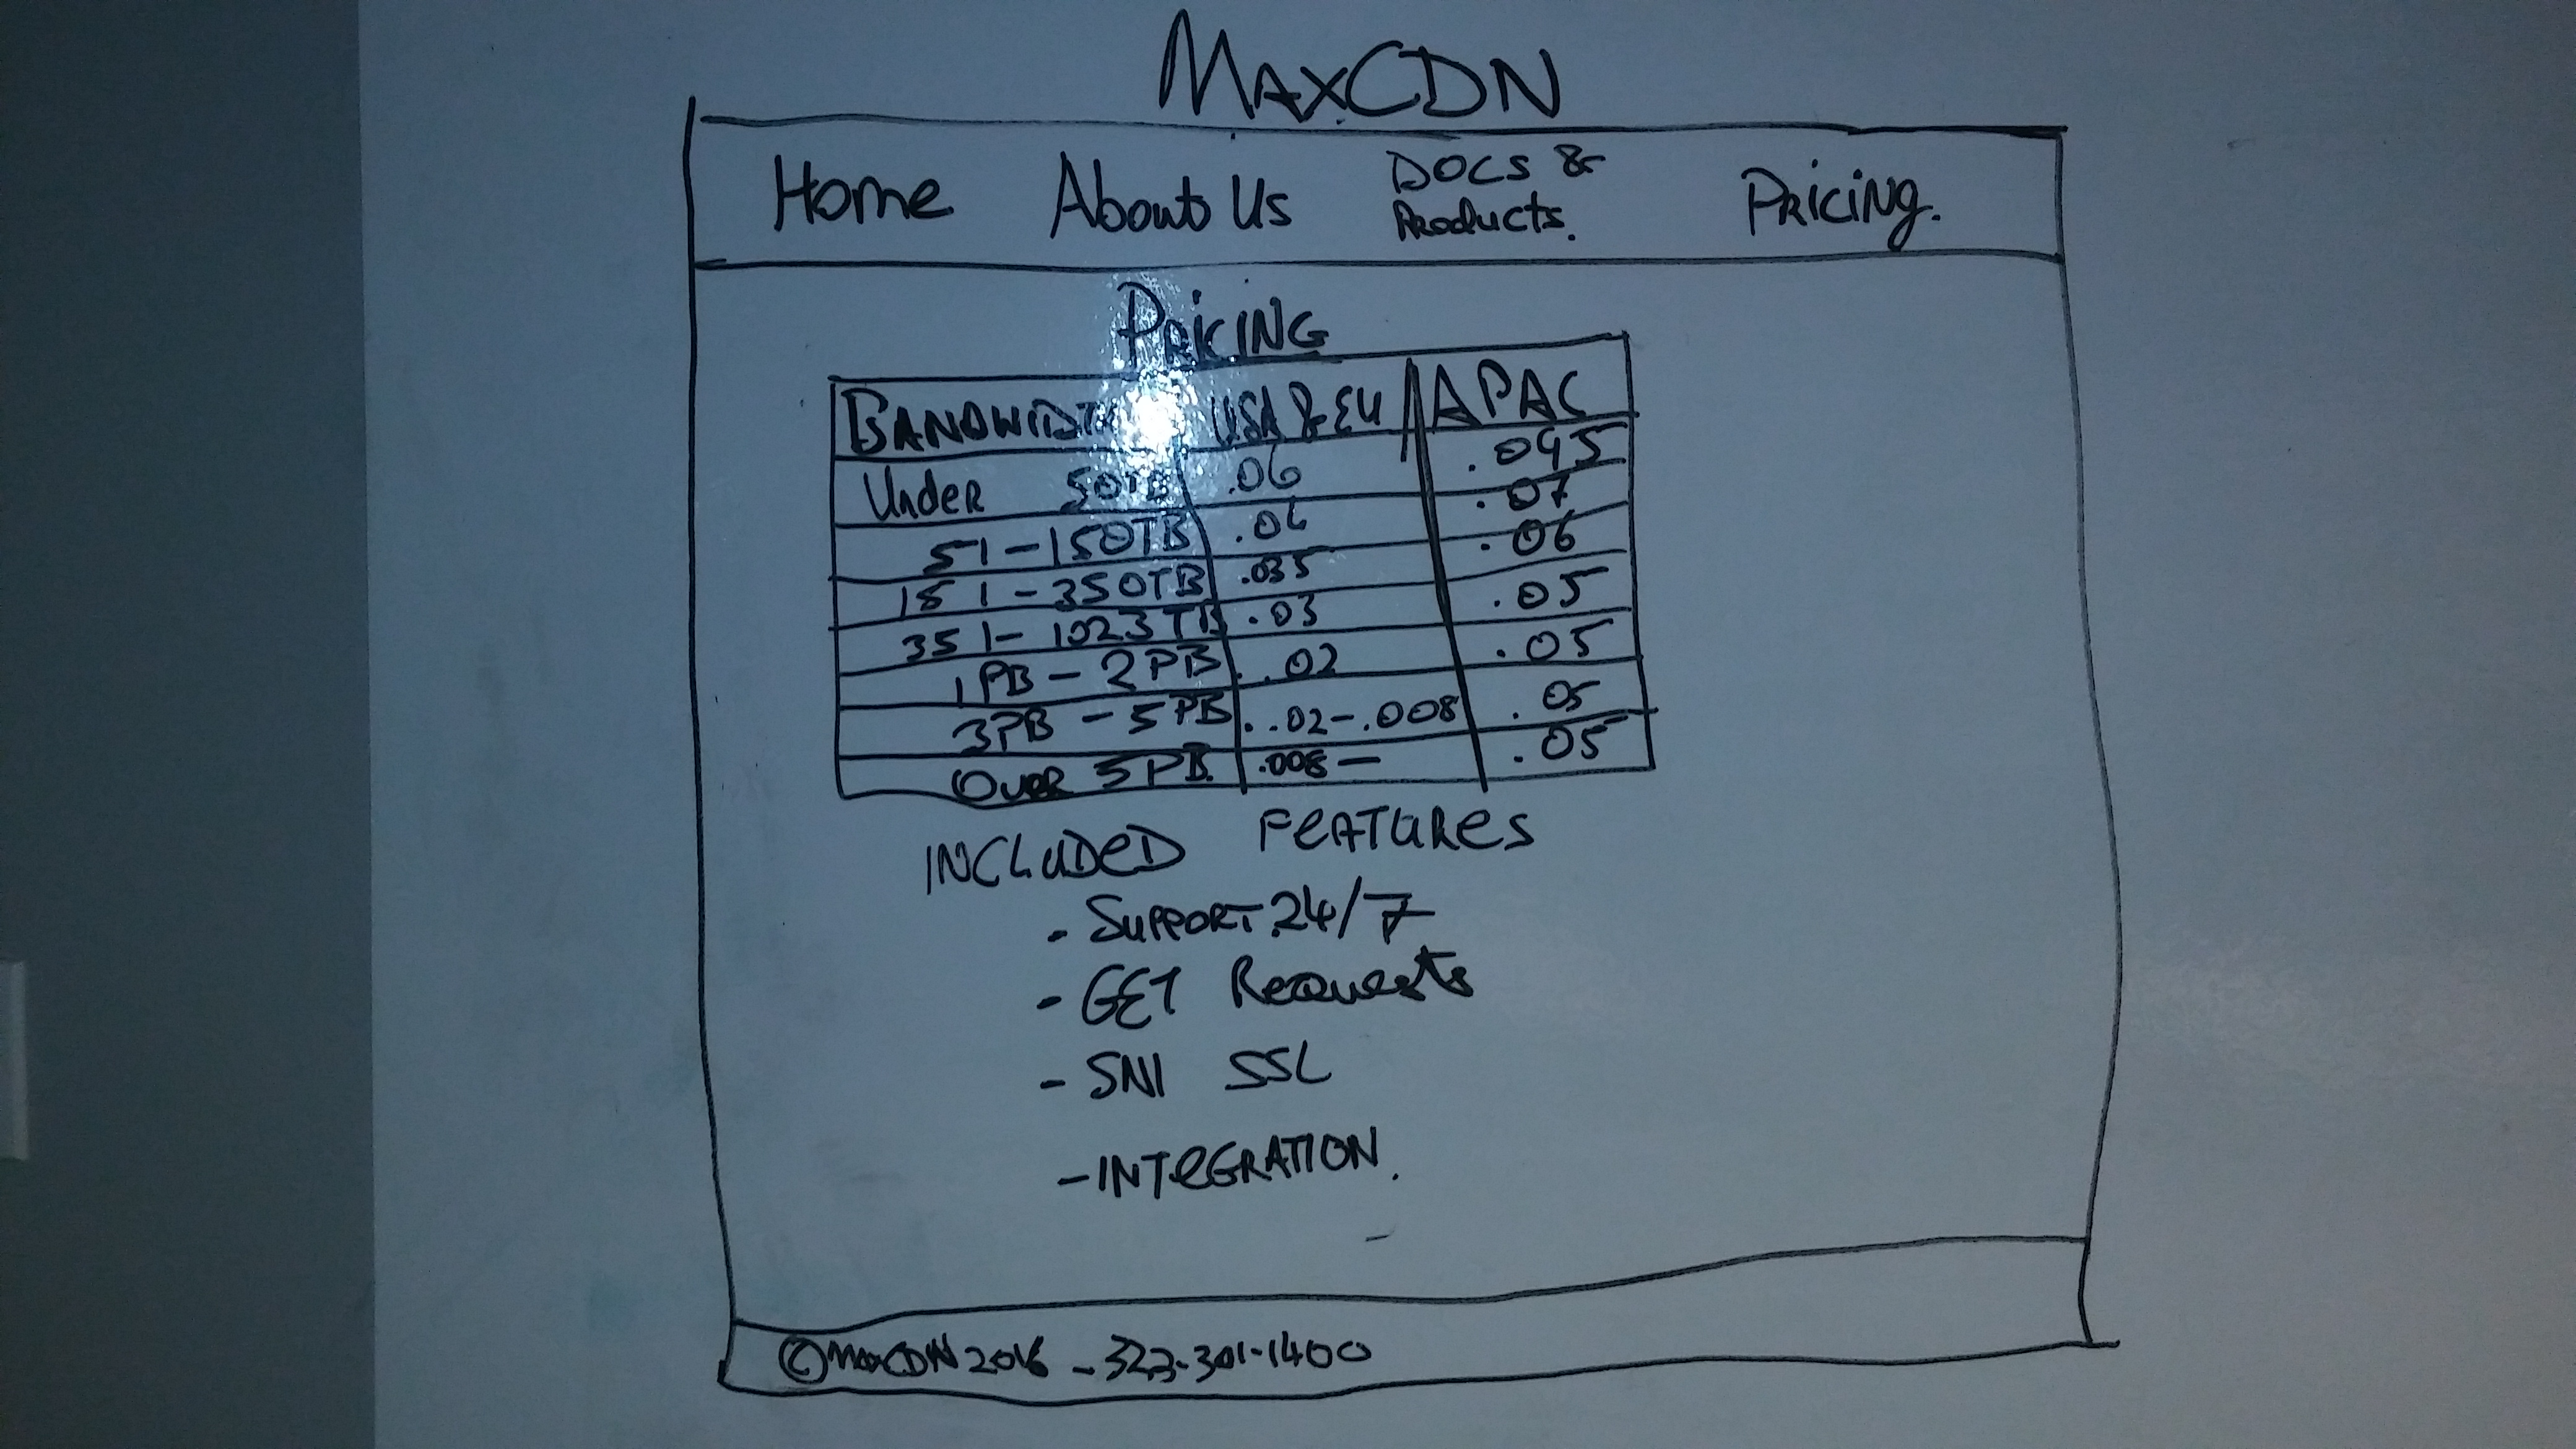 MAXCDN
Home About Us DOCS & Products. Pricing.
PRICING
BANDWIDTH USA & EU APAC
Under 50TB .06 .095
51-150TB .04 .07
151-350TB .035 .06
351-1023TB .03 .05
1PB-2PB .02 .05
3PB-5PB ..02-.008 .05
Over 5PB. .008- .05
INCLUDED FEATURES
- SUPPORT 24/7
- GET Requests
- SNI SSL
- INTEGRATION.
© MaxCDN 2016 - 323-301-1400